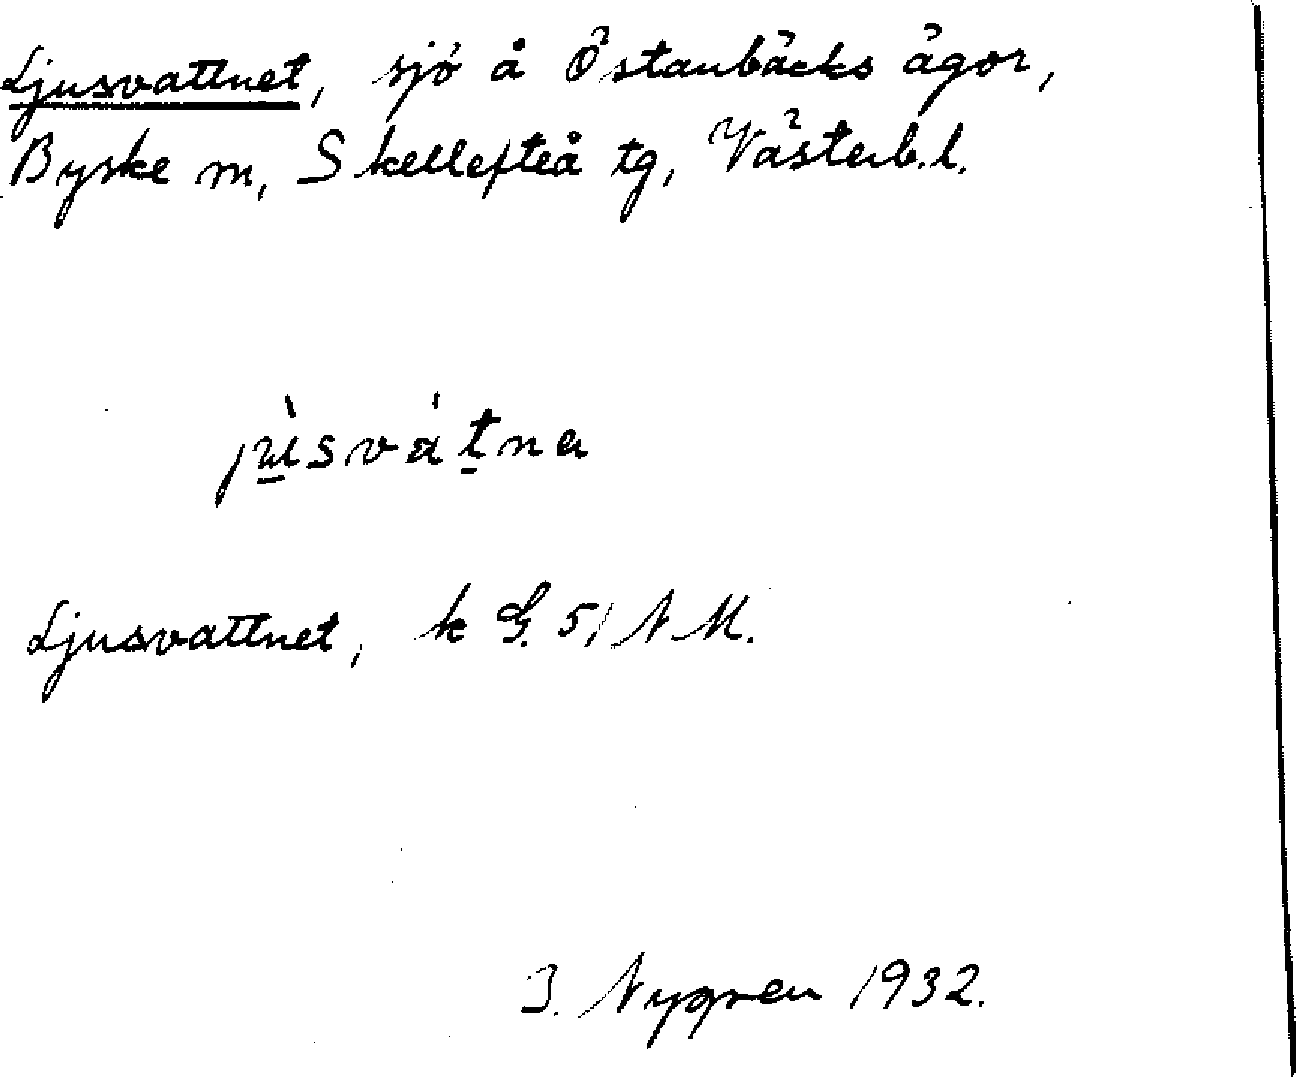 Ljusvattnet, sjö å Östanbäcks ägor,
Byske m, Skellefteå tg, Västerb.l.
jùsvátna
Ljusvattnet, k G. 51 N M.
J. Nygren 1932.